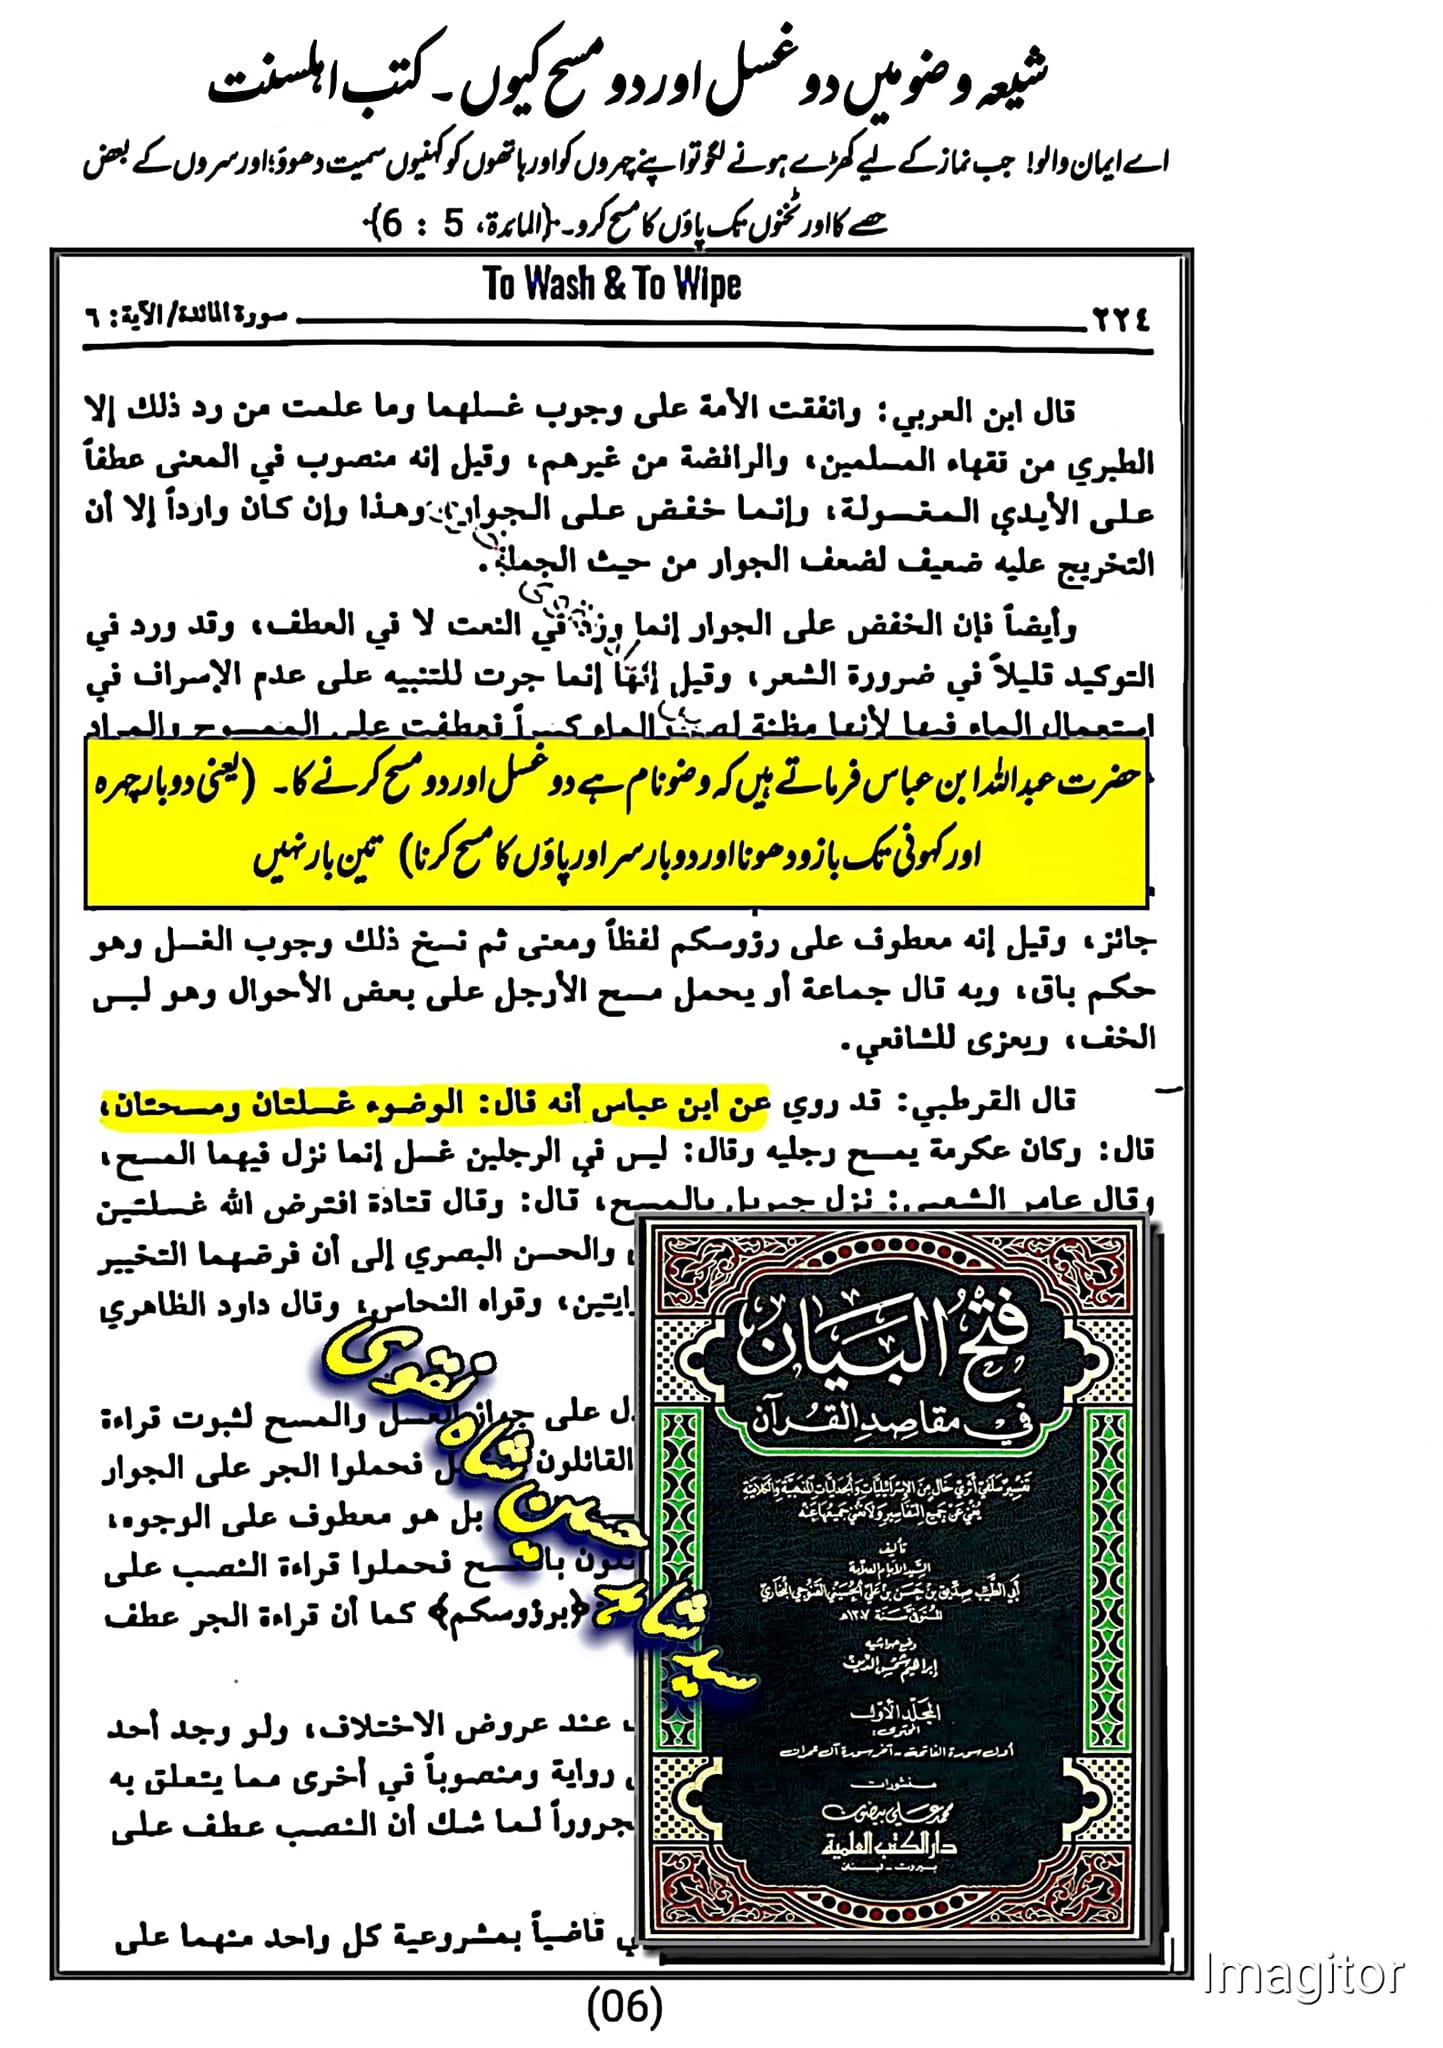 شیعہ وضو میں دو غسل اور دو مسح کیوں۔ کتب اہلسنت
اے ایمان والو! جب نماز کے لیے کھڑے ہونے لگو تو اپنے چہروں کو اور ہاتھوں کو کہنیوں سمیت دھوؤ؛ اور سروں کے بعض
حصے کا اور ٹخنوں تک پاؤں کا مسح کرو۔ {المائدۃ، 5 : 6}
To Wash & To Wipe
٢٢٤ سورة المائدة/ الآية: ٦
قال ابن العربي: واتفقت الأمة على وجوب غسلهما وما علمت من رد ذلك إلا
الطبري من فقهاء المسلمين، والرافضة من غيرهم، وقيل إنه منصوب في المعنى عطفاً
على الأيدي المغسولة، وإنما خفض على الجوار، وهذا وإن كان وارداً إلا أن
التخريج عليه ضعيف لضعف الجوار من حيث الجملة.
وأيضاً فإن الخفض على الجوار إنما ورد في النعت لا في العطف، وقد ورد في
التوكيد قليلاً في ضرورة الشعر، وقيل إنها إنما جرت للتنبيه على عدم الإسراف في
استعمال الماء فيها لأنها مظنة لصب الماء كثيراً فعطفت على الممسوح والمراد
حضرت عبداللہ ابن عباس فرماتے ہیں کہ وضو نام ہے دو غسل اور دو مسح کرنے کا۔ (یعنی دو بار چہرہ
اور کہونی تک بازو دھونا اور دو بار سر اور پاؤں کا مسح کرنا) تین بار نہیں
جائز، وقيل إنه معطوف على رؤوسكم لفظاً ومعنى ثم نسخ ذلك وجوب الغسل وهو
حكم باق، وبه قال جماعة أو يحمل مسح الأرجل على بعض الأحوال وهو لبس
الخف، ويعزى للشافعي.
قال القرطبي: قد روي عن ابن عباس أنه قال: الوضوء غسلتان ومسحتان،
قال: وكان عكرمة يمسح رجليه وقال: ليس في الرجلين غسل إنما نزل فيهما المسح،
وقال عامر الشعبي: نزل جبريل بالمسح، قال: وقال قتادة افترض الله غسلتين
والحسن البصري إلى أن فرضهما التخيير
وقواه النحاس، وقال داود الظاهري
على جواز الغسل والمسح لثبوت قراءة
القائلون فحملوا الجر على الجوار
بل هو معطوف على الوجوه،
فحملوا قراءة النصب على
﴿برؤوسكم﴾ كما أن قراءة الجر عطف
عند عروض الاختلاف، ولو وجد أحد
رواية ومنصوباً في أخرى مما يتعلق به
لما شك أن النصب عطف على
قاضياً بمشروعية كل واحد منهما على
سید شاہد حسین شاہ نقوی
فتح البيان
في مقاصد القرآن
تفسير سلفي أثري خال من الإسرائيليات والجدليات المذهبية والكلامية
يغني عن جميع التفاسير ولا تغني جميعها عنه
تأليف
السيد الإمام العلامة
أبي الطيب صديق بن حسن بن علي الحسيني القنوجي البخاري
المتوفى سنة ١٣٠٧هـ
وضع حواشيه
إبراهيم شمس الدين
المجلد الأول
المحتوى:
أول سورة الفاتحة - آخر سورة آل عمران
منشورات
محمد علي بيضون
دار الكتب العلمية
بيروت - لبنان
(06)
Imagitor